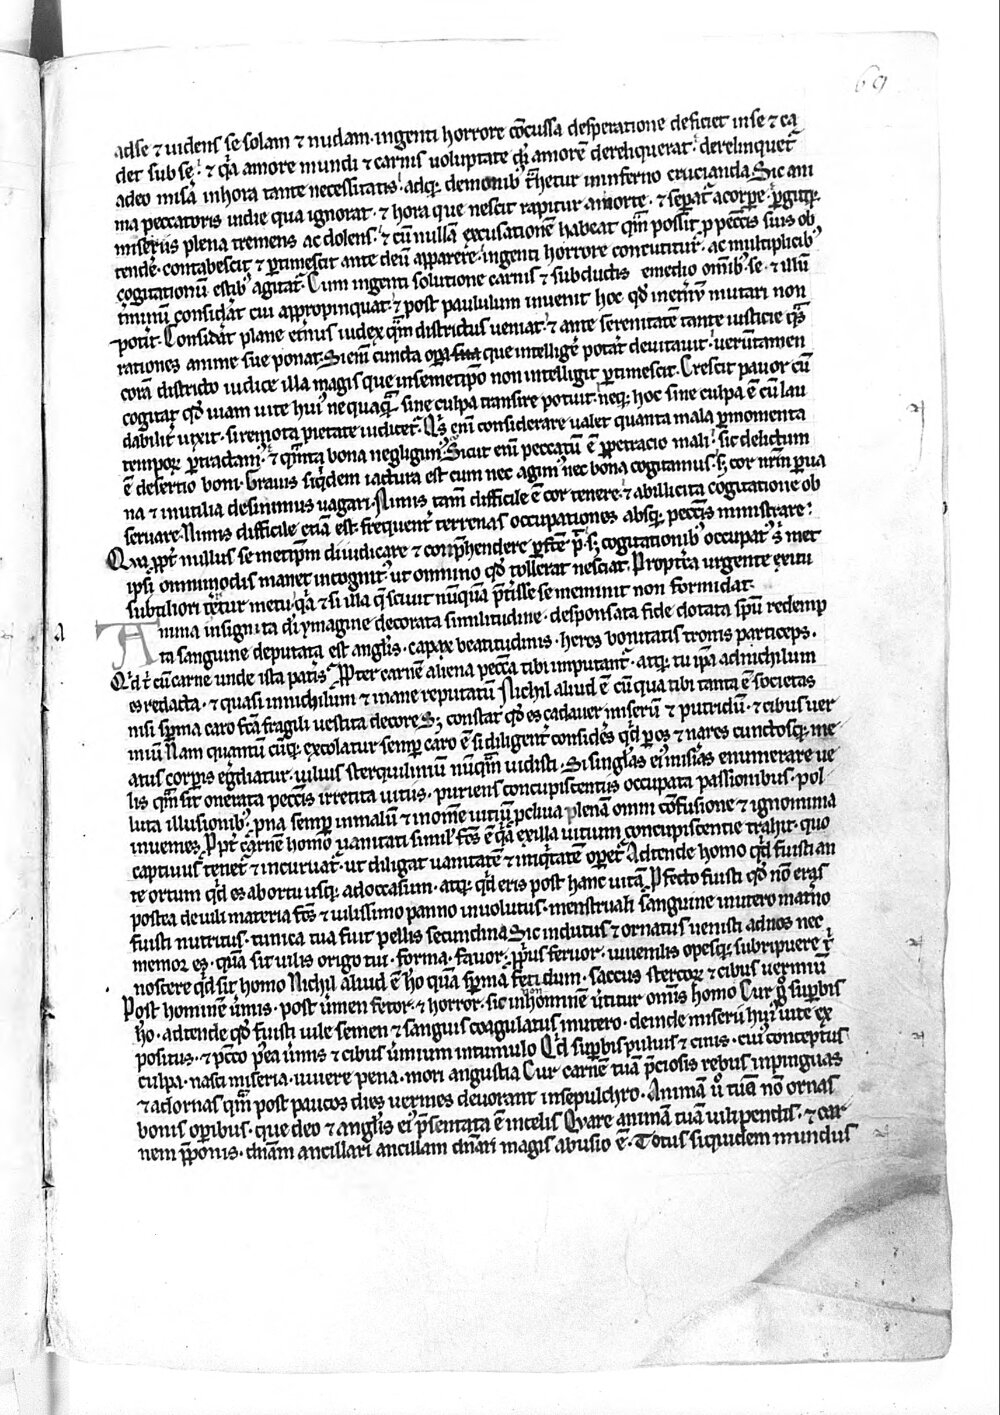 69
adse & uidens se solam & nudam. ingenti horrore cōcussa desperatione deficiet inse & ca
det sub se. & qͥa amore mundi & carnis uoluptate dī amorē dereliquerat. derelinquet᷑
adeo misa inhora tante necessitatis. adq; demonib᷒ t̄hetur ininferno crucianda. Sic ani
ma peccatoris indie qua ignorat. & hora que nescit rapitur amorte. & sepat᷑ acorpe. ꝑgitq;
miseriis plena tremens ac dolens. & cū nullā excusationē habeat qm̄ possit ꝓ pecc̄is suis ob
tendē. contabescit & ꝑtimescit ante deū apparere. ingenti horrore concutitur. ac multiplicib᷒
cogitationū estib᷒ agitat᷑. Cum ingenti solutione carnis & subductis emedio omīb᷒ se. & illū
t̄minū considāt cui appropinquat. & post paululum inuenit hoc qđ inet̄nū mutari non
potit᷑. Considāt plane et̄nus iudex qm̄ districtus ueniat. & ante serenitatē tante iusticie qͣs
rationes anime sue ponat. Si enī cuncta opa que intelligē potāt deuitauit. uerūtamen
corā districto iudice illa magis que insemetip̄o non intelligit ꝑtimescit. Crescit pauor cū
cogitat qđ uiam uite hui᷒ nequaquā sine culpa transire potuit. neq; hoc sine culpa ē cū lau
dabilit᷑ uixit. si remota pietate iudicet᷑. Qͥs enī considerare ualet quanta mala ꝑ momenta
tempoꝝ ꝑtractam᷒. & qͣnta bona negligim᷒. Sicut enī peccatū ē ꝑpetracio mali. sic delictum
ē desertio boni. Grauis siqͥdem iactura est cum nec agim᷒ nec bona cogitamus. s; cor nr̄m ꝑ ua
na & inutilia desinimus uagari. Nimis tam̄ difficile ē cor tenere. & abillicita cogitatione ob
seruare. Nimis difficile etiā est. frequent᷑ terrenas occupationes absq; pecc̄is ministrare.
Qua ꝓpt᷑ nullus se metip̄m diiudicare & conp̄hendere ꝑfc̄e p̄t. s; cogitationib᷒ occupat᷒ sͥ met
ipsi ommodis manet incognit᷒. ut omnino qđ tollerat nesciat. Propt̄ea urgente exitu
subtiliori t̄retur metu. qͥa & si illa q̄ sciuit nūquā p̄t̄isse se meminit non formidat.
Anima insignita dī ymagine decorata similitudine. desponsata fide dotata sp̄u redemp
ta sanguine deputata est angl̄is. capax beatitudinis. heres bonitatis tronis particeps.
Qͥd t̄ cū carne unde ista patis. Ꝓpter carnē aliena pecc̄a tibi imputant᷑. atq; tu ip̄a adnichilum
es redacta. & quasi innichilum & inane reputatū. Nichil aliud ē cū qua tibi tanta ē societas
nisi spma caro fc̄a fragili uestita decore. S; constat qđ es cadauer miserū & putridū. & cibus uer
miū. Nam quantū cūq; excolatur semp caro ē. si diligent᷑ considēs qͥd ꝑ os & nares cunctosq; me
atus corporis eḡdiatur. uilius sterquilinū nūquā uidisti. Si singlas ei᷒ misias enumerare ue
lis qm̄ sit onerata pecc̄is irretita uitiis. puriens concupiscentiis occupata passionibus. pol
luta illusionib᷒. pna semp inmalū & inomē uitiū ꝓcliua plenā omni cōfusione & ignominia
inuenies. Ꝓpt᷑ carnē homo uanitati similis fc̄s ē qͥa exilla uitium concupiscentie trahit. quo
captiuus tenet᷑ & incuruat᷑. ut diligat uanitatē & iniqͥtatē opet᷑. Adtende homo qͥd fuisti an
te ortum qͥd es abortu usq; adoccasum. atq; qͥd eris post hanc uitā. Pfecto fuisti qđ nō eras
postea de uili materia fc̄s & uilissimo panno inuolutus. menstruali sanguine inutero mat̄no
fuisti nutritus. tunica tua fuit pellis secundina. Sic indutus & ornatus uenisti adnos nec
memor es. quā sit uilis origo tui. forma. fauor. ppl̄us feruor. iuuenilis opesq; subripuere t᷑
noscere qͥd sit homo. Nichil aliud ē ho quā spma fetidum. saccus stercoꝝ & cibus uermiū
Post hominē ūmis. post ūmen fetor. & horror. sic innon hominē ūtitur omīs homo. Cur gͦ supbis
ho. adtende qđ fuisti uile semen & sanguis coagulatus inutero. deinde miserū hui᷒ uite ex
positus. & pc̄co p̄ea ūmis & cibus ūmium intumulo. Qͥd supbis puluis & cinis. cui᷒ conceptus
culpa. nasci miseria. uiuere pena. mori angustia. Cur carnē tuā p̄ciosis rebus inpinguas
& adornas quā post paucos dies uermes deuorant insepulchro. Animā ū tuā nō ornas
bonis opibus. que deo & angl̄is ei᷒ p̄sentata ē incelis. Quare animā tuā uilipendis. & car
nem p̄ponis. dn̄am ancillari ancillam dn̄ari magis abusio ē. Totus siquidem mundus